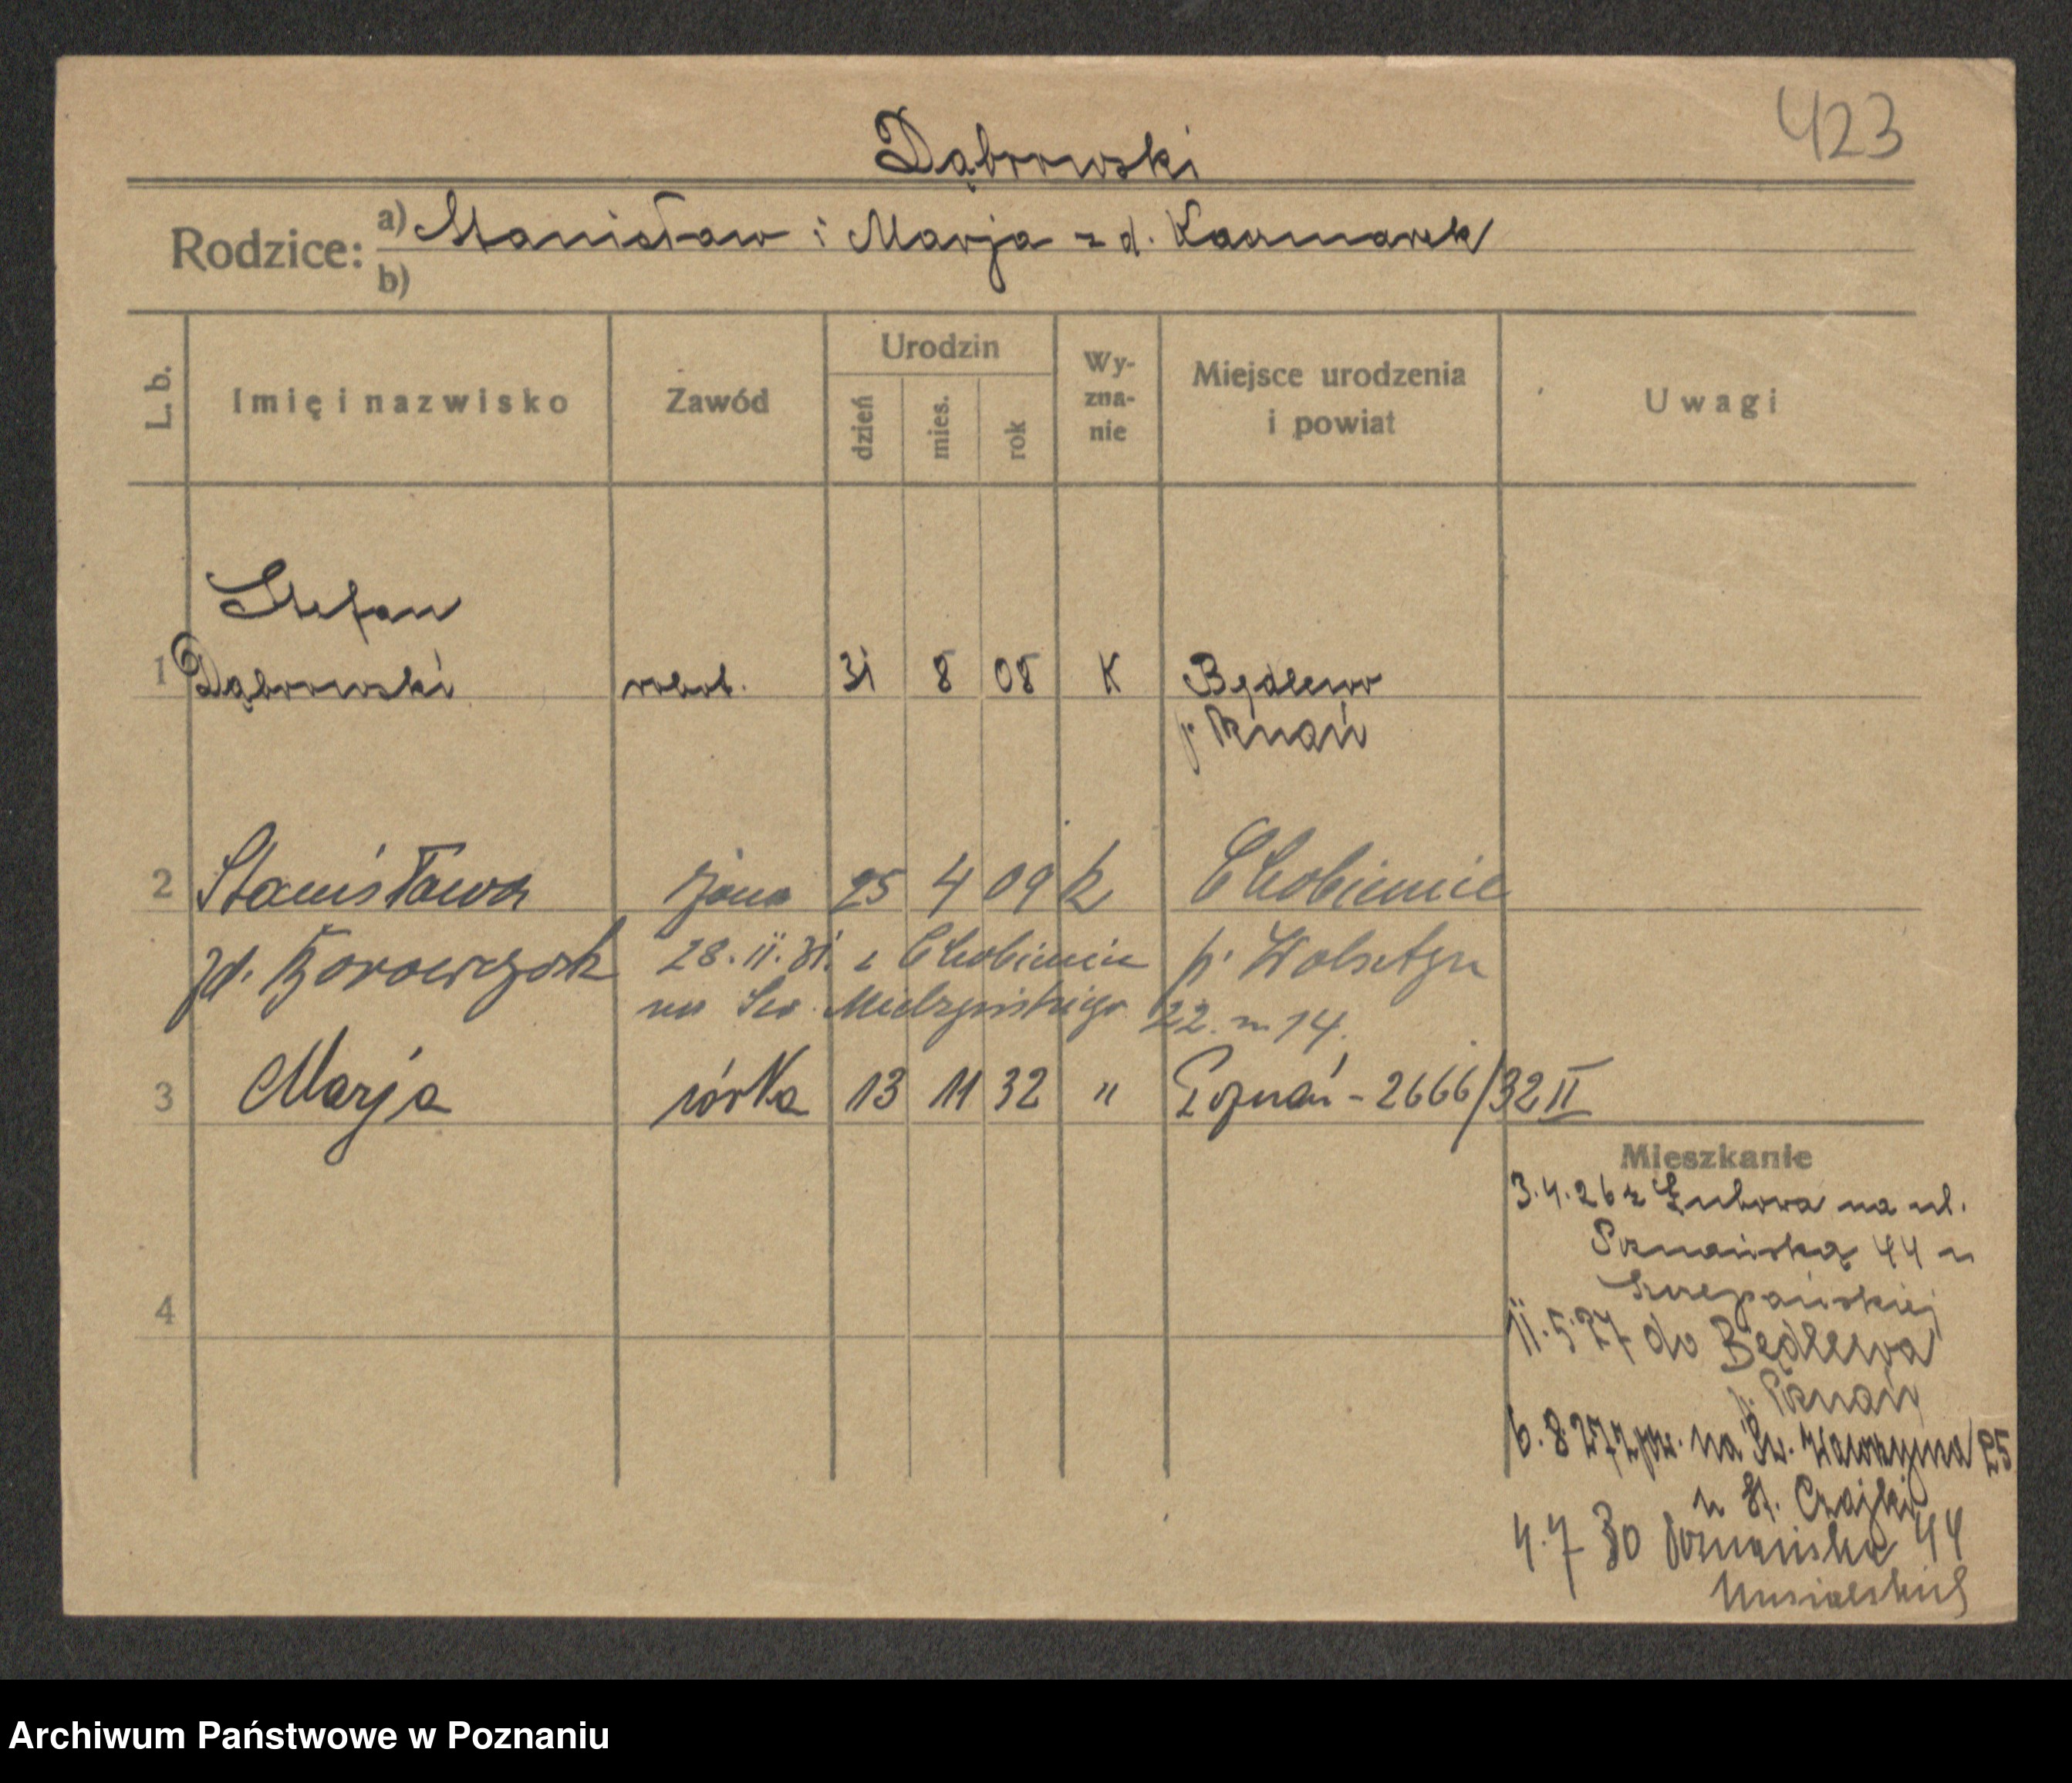 423
Dąbrowski
Rodzice: a) Stanisław i Marja z d. Kaczmarek
b)
L. b. Imię i nazwisko Zawód Urodzin dzień mies. rok Wy-zna-nie Miejsce urodzenia i powiat Uwagi
Stefan
1 Dąbrowski robot. 31 8 08 K Będlewo
p. Poznań
2 Stanisława żona 25 4 09 k Chobienice
zd. Borowczak 28.11.31. z Chobienic p. Wolsztyn
na Sew. Mielżyńskiego 22. m 14.
3 Marja córka 13 11 32 " Poznań - 2666/32 II
Mieszkanie
3.4.26 z na ul.
Poznańską 44 u
Szczepańskiej
4
11.5.27 do Będlewa
p. Poznań
6.8.27 z pow. na Św. Wawrzyńca 25
u St. Czajki
4.7 30 Poznańska 44